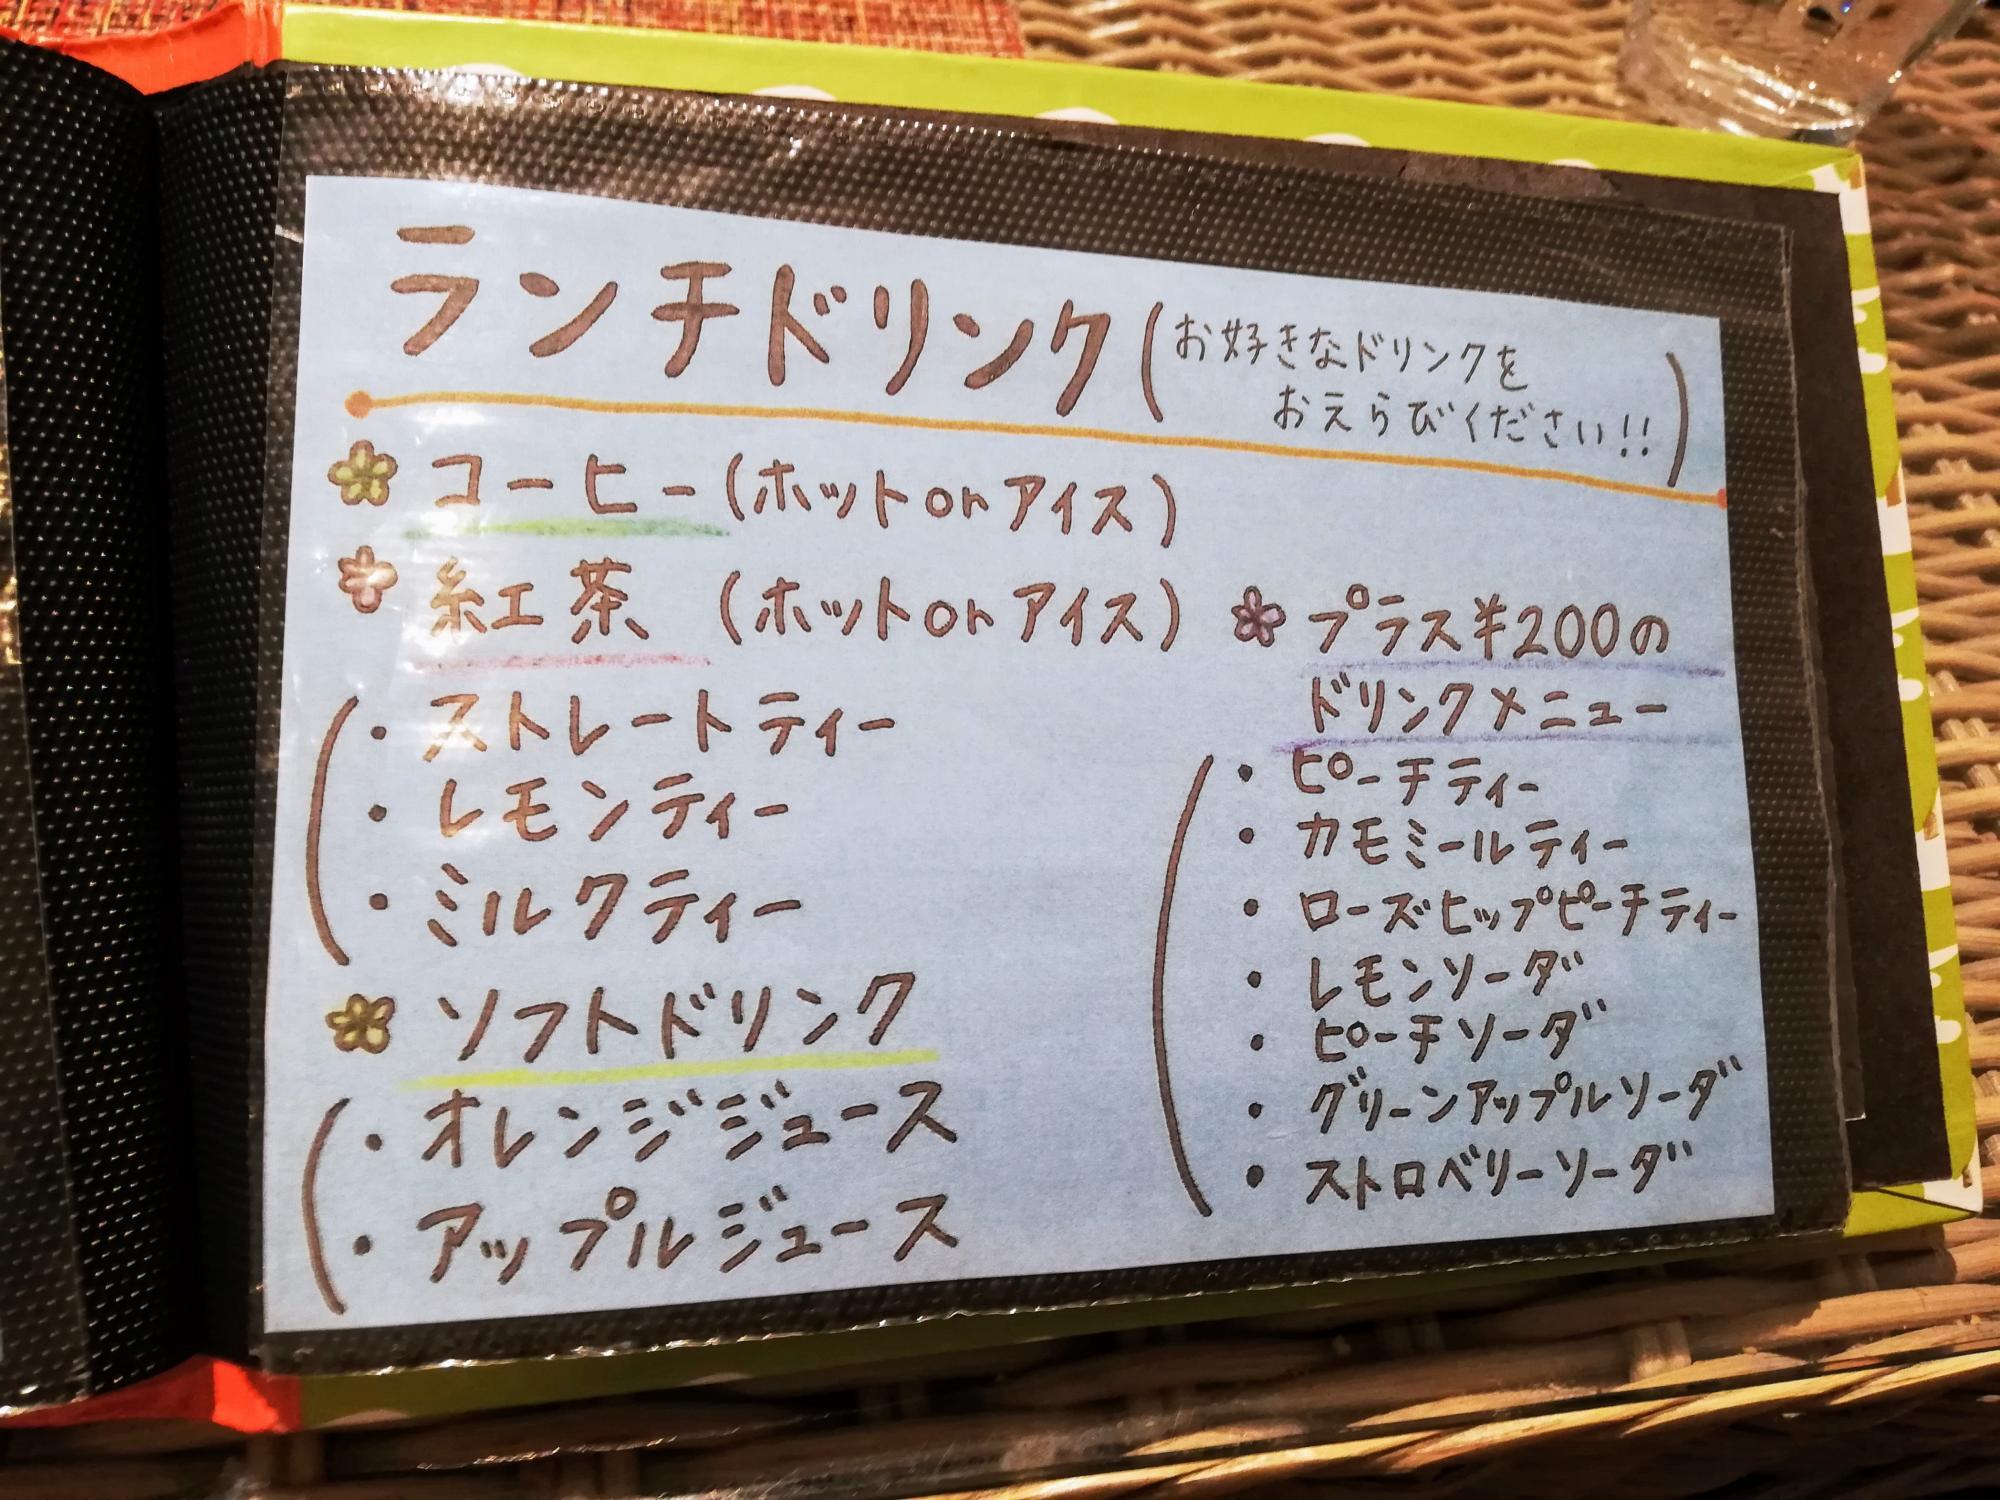 ランチドリンク(お好きなドリンクを
おえらびください!!)
コーヒー(ホットorアイス)
紅茶 (ホットorアイス)
・ストレートティー
・レモンティー
・ミルクティー
ソフトドリンク
・オレンジジュース
・アップルジュース
プラス¥200の
ドリンクメニュー
・ピーチティー
・カモミールティー
・ローズヒップピーチティー
・レモンソーダ
・ピーチソーダ
・グリーンアップルソーダ
・ストロベリーソーダ